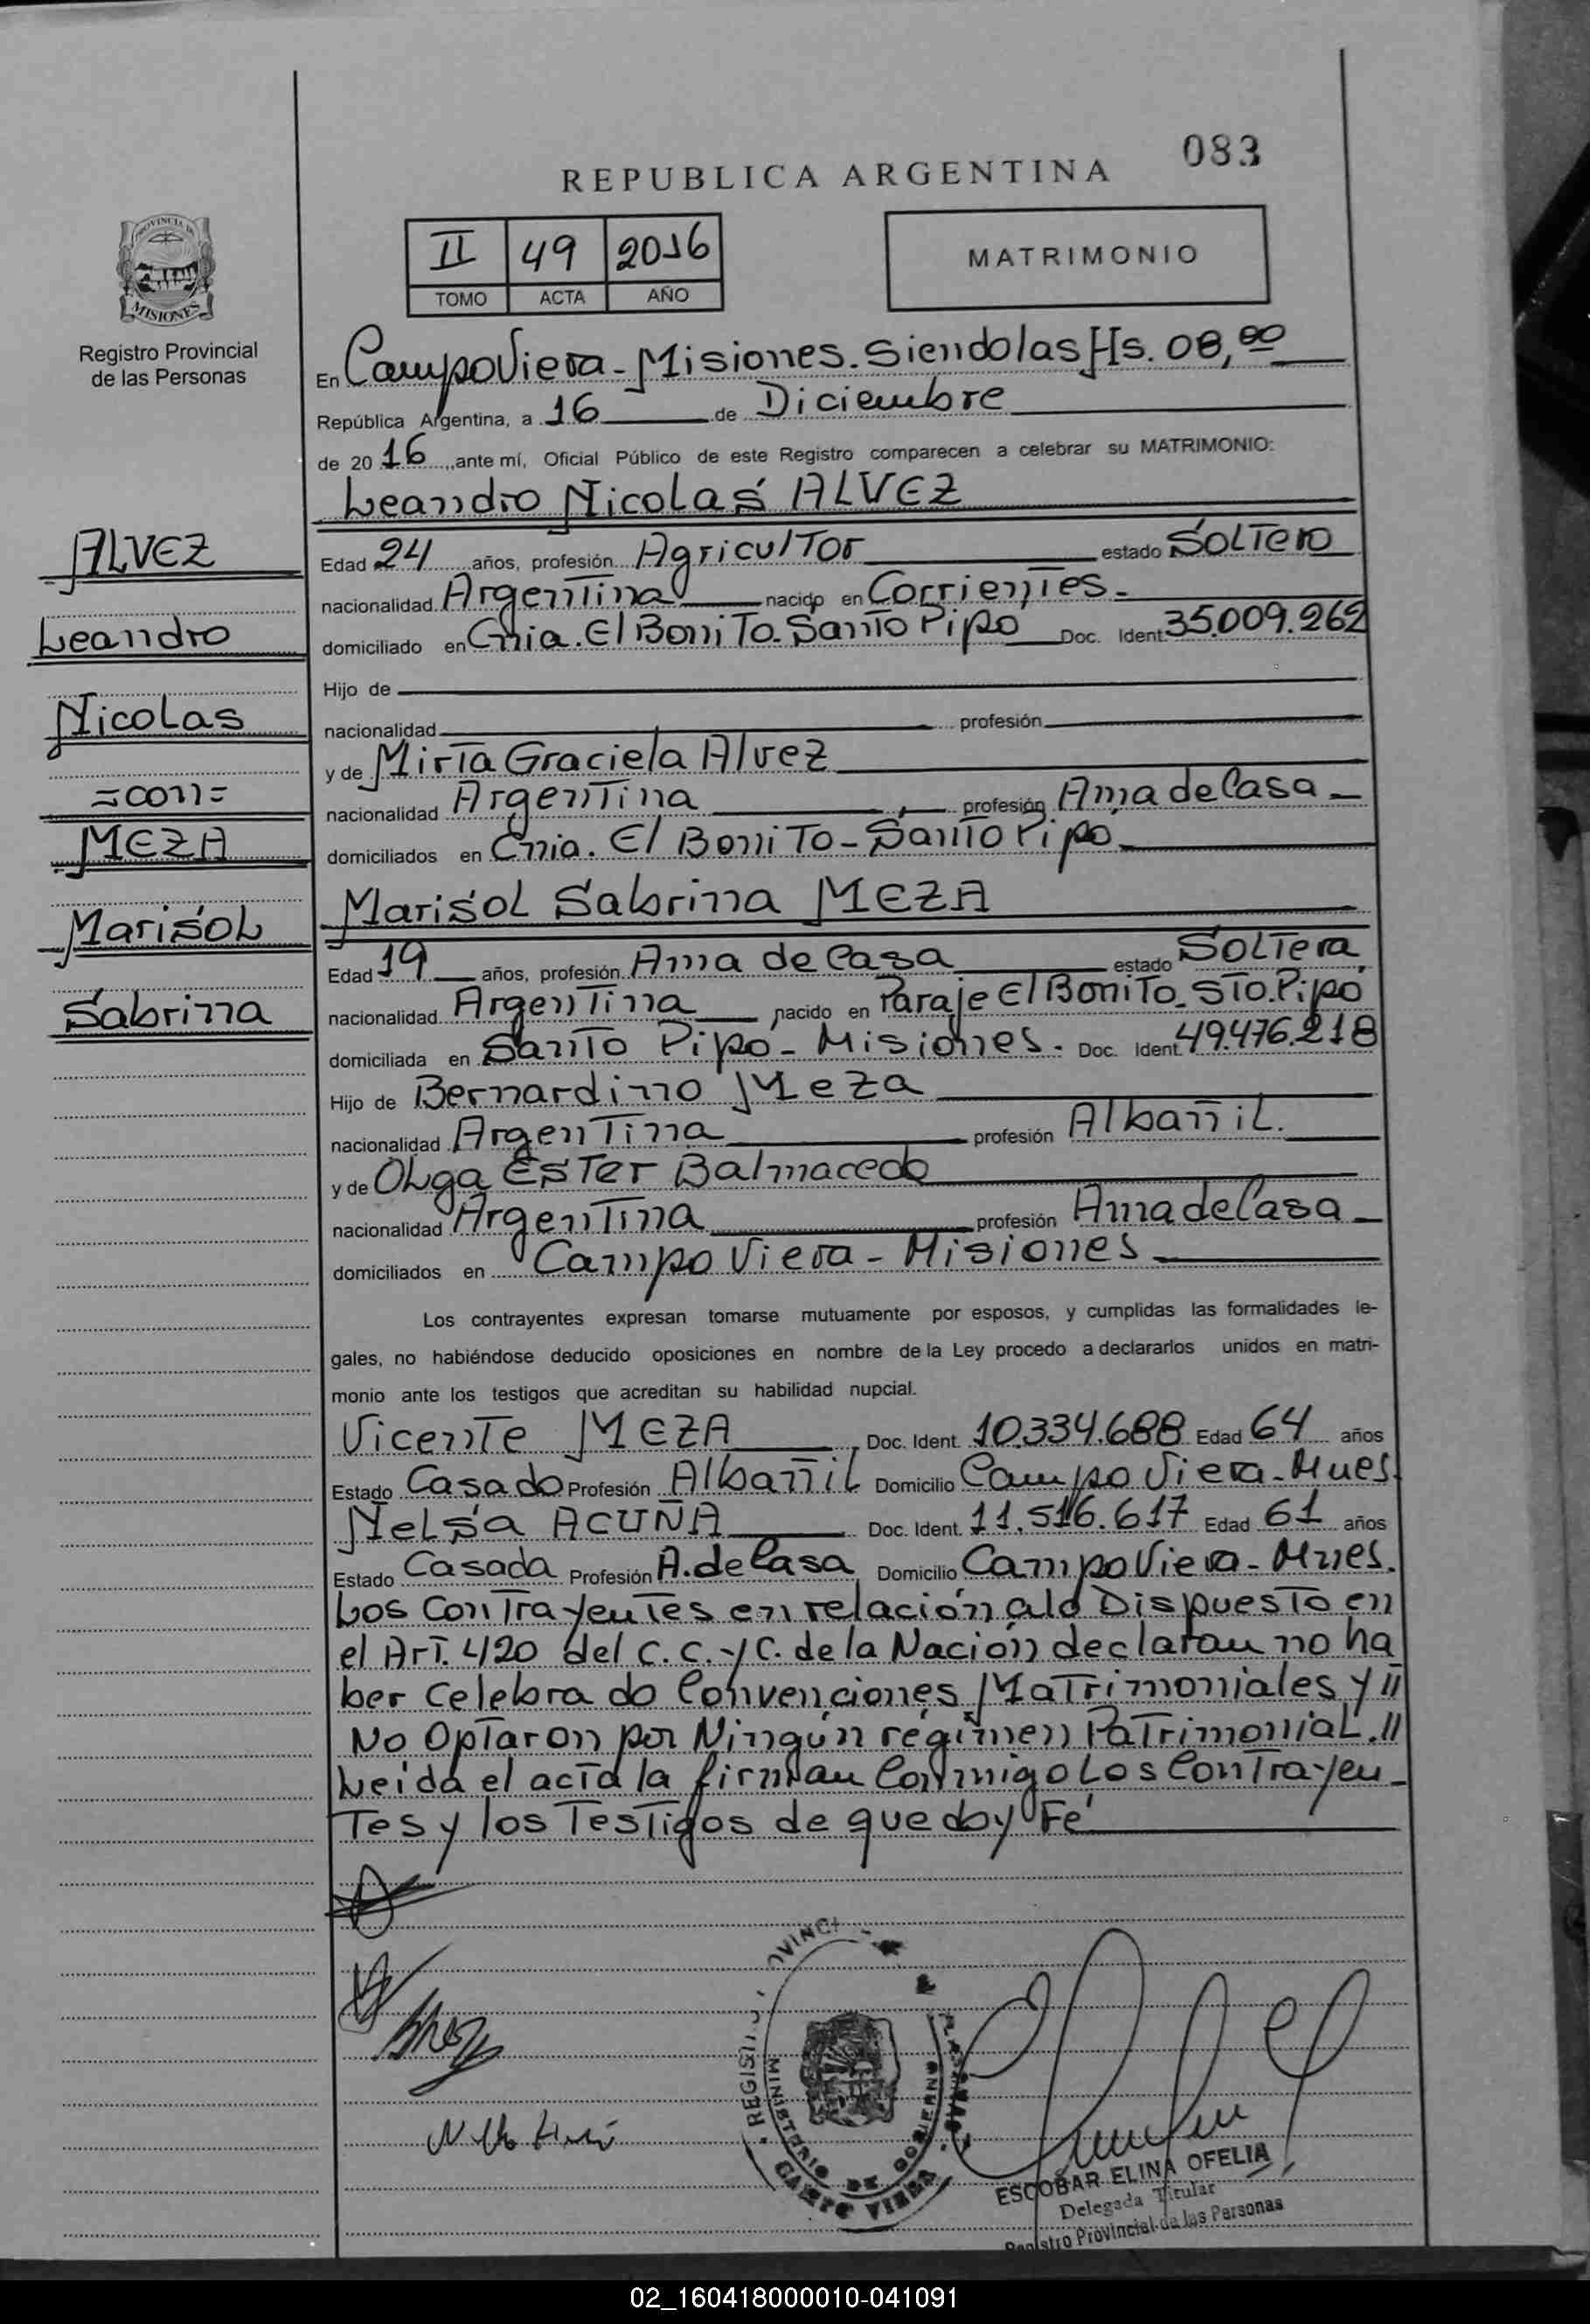 083
REPUBLICA ARGENTINA
II 49 2016
TOMO ACTA AÑO
MATRIMONIO
PROVINCIA DE
MISIONES
Registro Provincial
de las Personas
En Campo Viera - Misiones. Siendo las Hs. 08,00
República Argentina, a 16 de Diciembre
de 2016, ante mí, Oficial Público de este Registro comparecen a celebrar su MATRIMONIO:
Leandro Nicolas ALVEZ
Edad 24 años, profesión Agricultor estado Soltero
nacionalidad Argentina nacido en Corrientes.
domiciliado en Cnia. El Bonito - Santo Pipo Doc. Ident. 35.009.262
Hijo de
nacionalidad profesión
y de Mirta Graciela Alvez
nacionalidad Argentina profesión Ama de Casa
domiciliados en Cnia. El Bonito - Santo Pipó
Marisol Sabrina MEZA
Edad 19 años, profesión Ama de Casa estado Soltera
nacionalidad Argentina nacido en Paraje El Bonito - Sto. Pipó
domiciliada en Santo Pipó - Misiones. Doc. Ident. 49.476.218
Hijo de Bernardino Meza
nacionalidad Argentina profesión Albañil.
y de Olga Ester Balmaceda
nacionalidad Argentina profesión Ama de Casa
domiciliados en Campo Viera - Misiones
Los contrayentes expresan tomarse mutuamente por esposos, y cumplidas las formalidades le-
gales, no habiéndose deducido oposiciones en nombre de la Ley procedo a declararlos unidos en matri-
monio ante los testigos que acreditan su habilidad nupcial.
Vicente MEZA Doc. Ident. 10.334.688 Edad 64 años
Estado Casado Profesión Albañil Domicilio Campo Viera - Mnes.
Nelsa ACUÑA Doc. Ident. 11.516.617 Edad 61 años
Estado Casada Profesión A. de Casa Domicilio Campo Viera - Mnes.
Los Contrayentes en relación a lo Dispuesto en
el Art. 420 del C. C. y C. de la Nación declaran no ha
ber celebrado Convenciones Matrimoniales y //
No Optaron por Ningún régimen Patrimonial. //
Leída el acta la firman Conmigo Los Contrayen-
tes y los Testigos de que doy Fé
ALVEZ
Leandro
Nicolas
= con =
MEZA
Marisol
Sabrina
MINISTERIO DE GOBIERNO
CAMPO VIERA
ESCOBAR ELINA OFELIA
Delegada Titular
Registro Provincial de las Personas
02_160418000010-041091